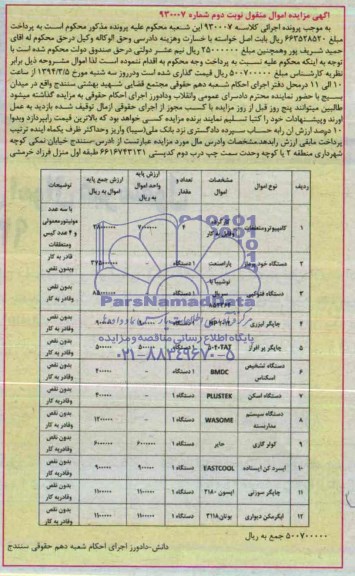 آگهی مزایده اموال منقول نوبت دوم شماره ۹۳۰۰۰۷
به موجب پرونده اجرائی کلاسه ۹۳۰۰۰۷ این شعبه محکوم علیه پرونده مذکور محکوم است به پرداخت
مبلغ ۶۶۳۵۲۸۵۲۰ ریال بابت اصل خواسته با خسارت وهزینه دادرسی وحق الوکاله وکیل درحق محکوم له آقای
حمید شریف پور وهمچنین مبلغ ۲۵۰۰۰۰۰۰ ریال نیم عشر دولتی درحق صندوق دولت محکوم شده است با
توجه به اینکه محکوم علیه نسبت به پرداخت وجه محکوم به اقدام ننموده است لذا اموال مشروحه ذیل برابر
نظریه کارشناس مبلغ ۵۰۰۷۰۰۰۰۰ ریال قیمت گذاری شده است ودرروز سه شنبه مورخ ۱۳۹۴/۳/۵ از ساعت
۱۰ الی ۱۱ درمحل دفتر اجرای احکام شعبه دهم حقوقی مجتمع قضایی شهید بهشتی سنندج واقع در میدان
بسیج با حضور نماینده محترم دادسرای عمومی وانقلاب ودادورز اجرای احکام حقوقی به مزایده گذاشته میشود
طالبین میتوانند پنج روز قبل از روز مزایده با کسب مجوز از اجرای حقوقی ازمال توقیف شده بازدید به عمل
آورند وپیشنهادات خود را کتبا تسلیم نمایند برنده مزایده کسی خواهد بود که بالاترین قیمت رابپردازد وبدوا
۱۰ درصد ارزش آن رابه حساب سپرده دادگستری نزد بانک ملی(سیبا) واریز وحداکثر ظرف یکماه آینده ترتیب
پرداخت مابقی ارزش رابدهد.مشخصات وادرس مال مورد مزایده عبارتست از :ادرس-سنندج خیابان نمکی کوچه
شهرداری منطقه ۲ با کوچه وحدت سمت چپ درب دوم کدپستی ۶۶۱۶۷۴۳۱۳۱ طبقه اول منزل فرزاد خرمشی
ردیف نوع اموال مشخصات اموال تعداد مقدار ارزش پایه واحد اموال به ریال ارزش جمع پایه اموال به ریال توضیحات
۱ کامپیوترومتعلقات ۴ ۷۰۰۰۰۰۰ ۲۸۰۰۰۰۰۰ با سه عدد مونیتورمعمولی و ۴ عدد کیس ومتعلقات
۲ دستگاه خودپرداز پاراصنعت ۱ دستگاه - ۳۷۵۰۰۰۰۰۰ قادر به کار وبدون نقص
۳ دستگاه فتوکپی توشیبا ۱ دستگاه - بدون نقص وقادربه کار
۴ چاپگر لیزری بدون نقص وقادر به کار
۵ چاپگر پرافراژ بدون نقص وقادربه کار
۶ دستگاه تشخیص اسکناس BMDC ۱ دستگاه - بدون نقص وقادر به کار
۷ دستگاه اسکن PLUSTEK دستگاه ۱ - بدون نقص وقادربه کار
۸ دستگاه سیستم مداربسته WASOME دستگاه ۱ - بدون نقص وقادربه کار
۹ کولر گازی جایر دستگاه ۱ ۶۰۰۰۰۰۰ ۶۰۰۰۰۰۰ بدون نقص وقادر به کار
۱۰ آبسرد کن ایستاده EASTCOOL دستگاه ۱ بدون نقص وقادربه کار
۱۱ چاپگر سوزنی اپسون ۲۱۸۰ دستگاه ۱ بدون نقص وقادربه کار
۱۲ آبگرمکن دیواری بوتان ۳۱۱۸ دستگاه ۱ بدون نقص وقادر به کار
ParsNamadData
پایگاه اطلاع رسانی مناقصه و مزایده
۰۲۱-۸۸۳۴۹۶۷۰-۵
۵۰۰۷۰۰۰۰۰ جمع به ریال
دانش-دادورز اجرای احکام شعبه دهم حقوقی سنندج